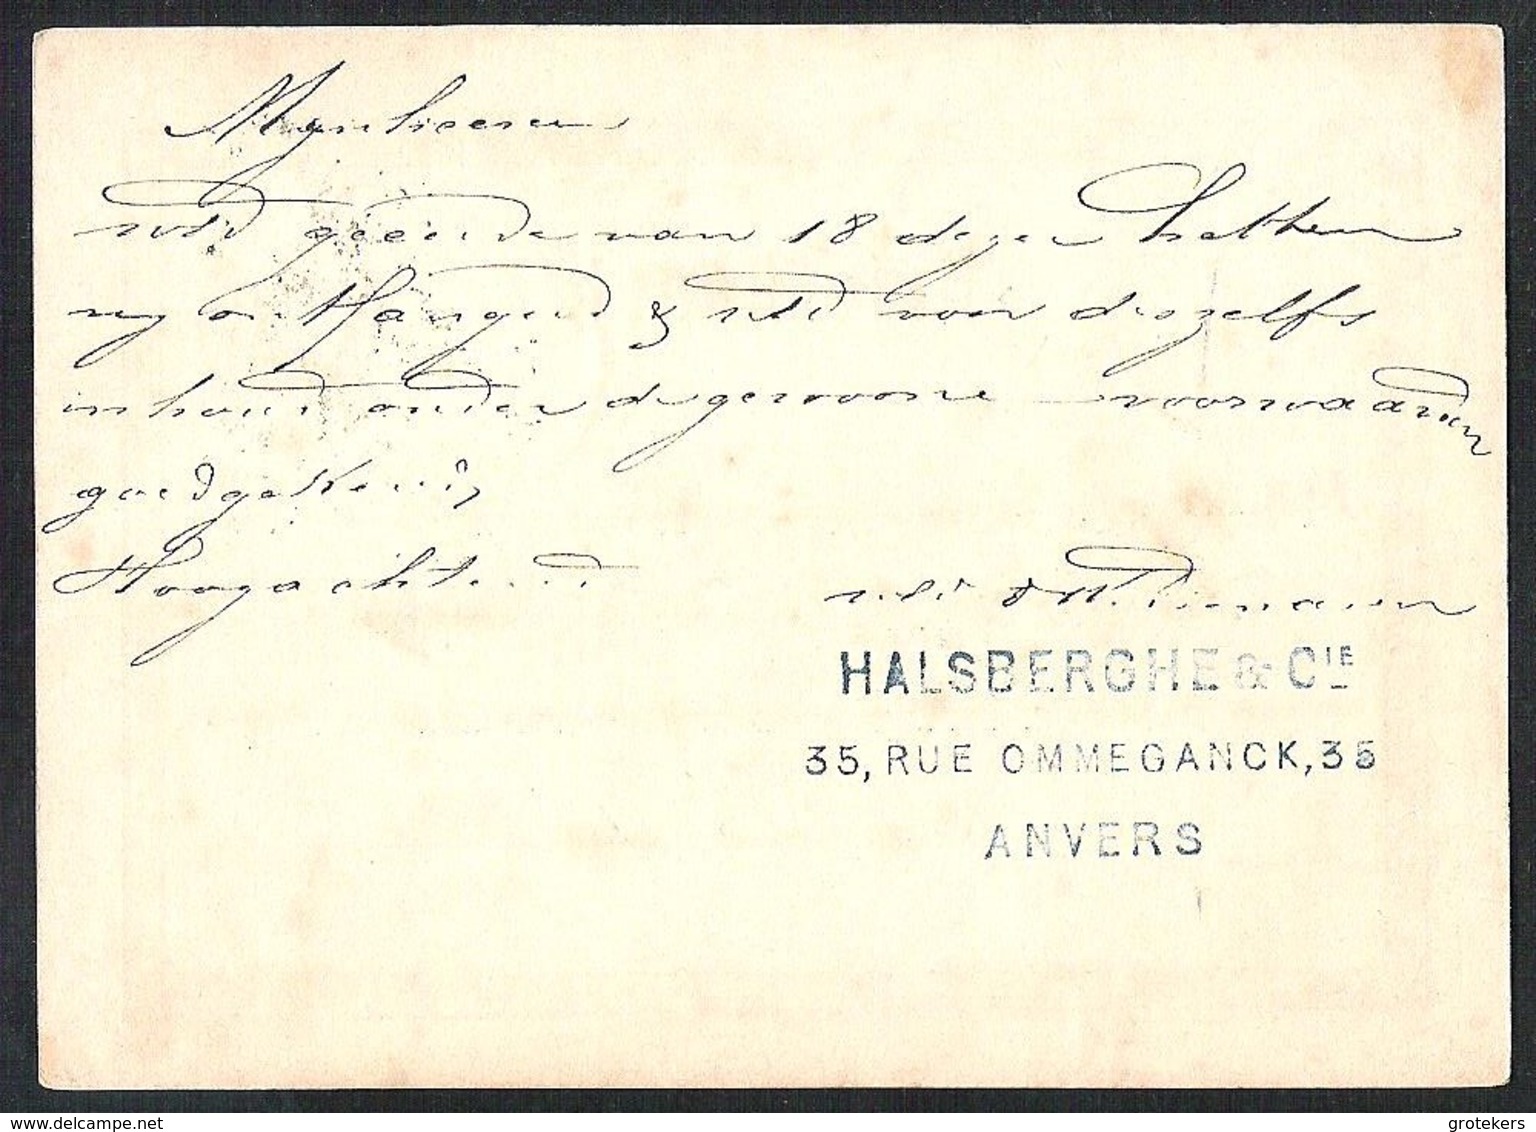 Mijnheeren
geëerde van 18 dezer hebben
wij ontfangen & voor deszelfs
inhoud onder de gewoone voorwaarden
goedgekeurd
Hoogachtend
HALSBERGHE & CIE
35, RUE OMMEGANCK, 35
ANVERS
delcampe.net
grotekers